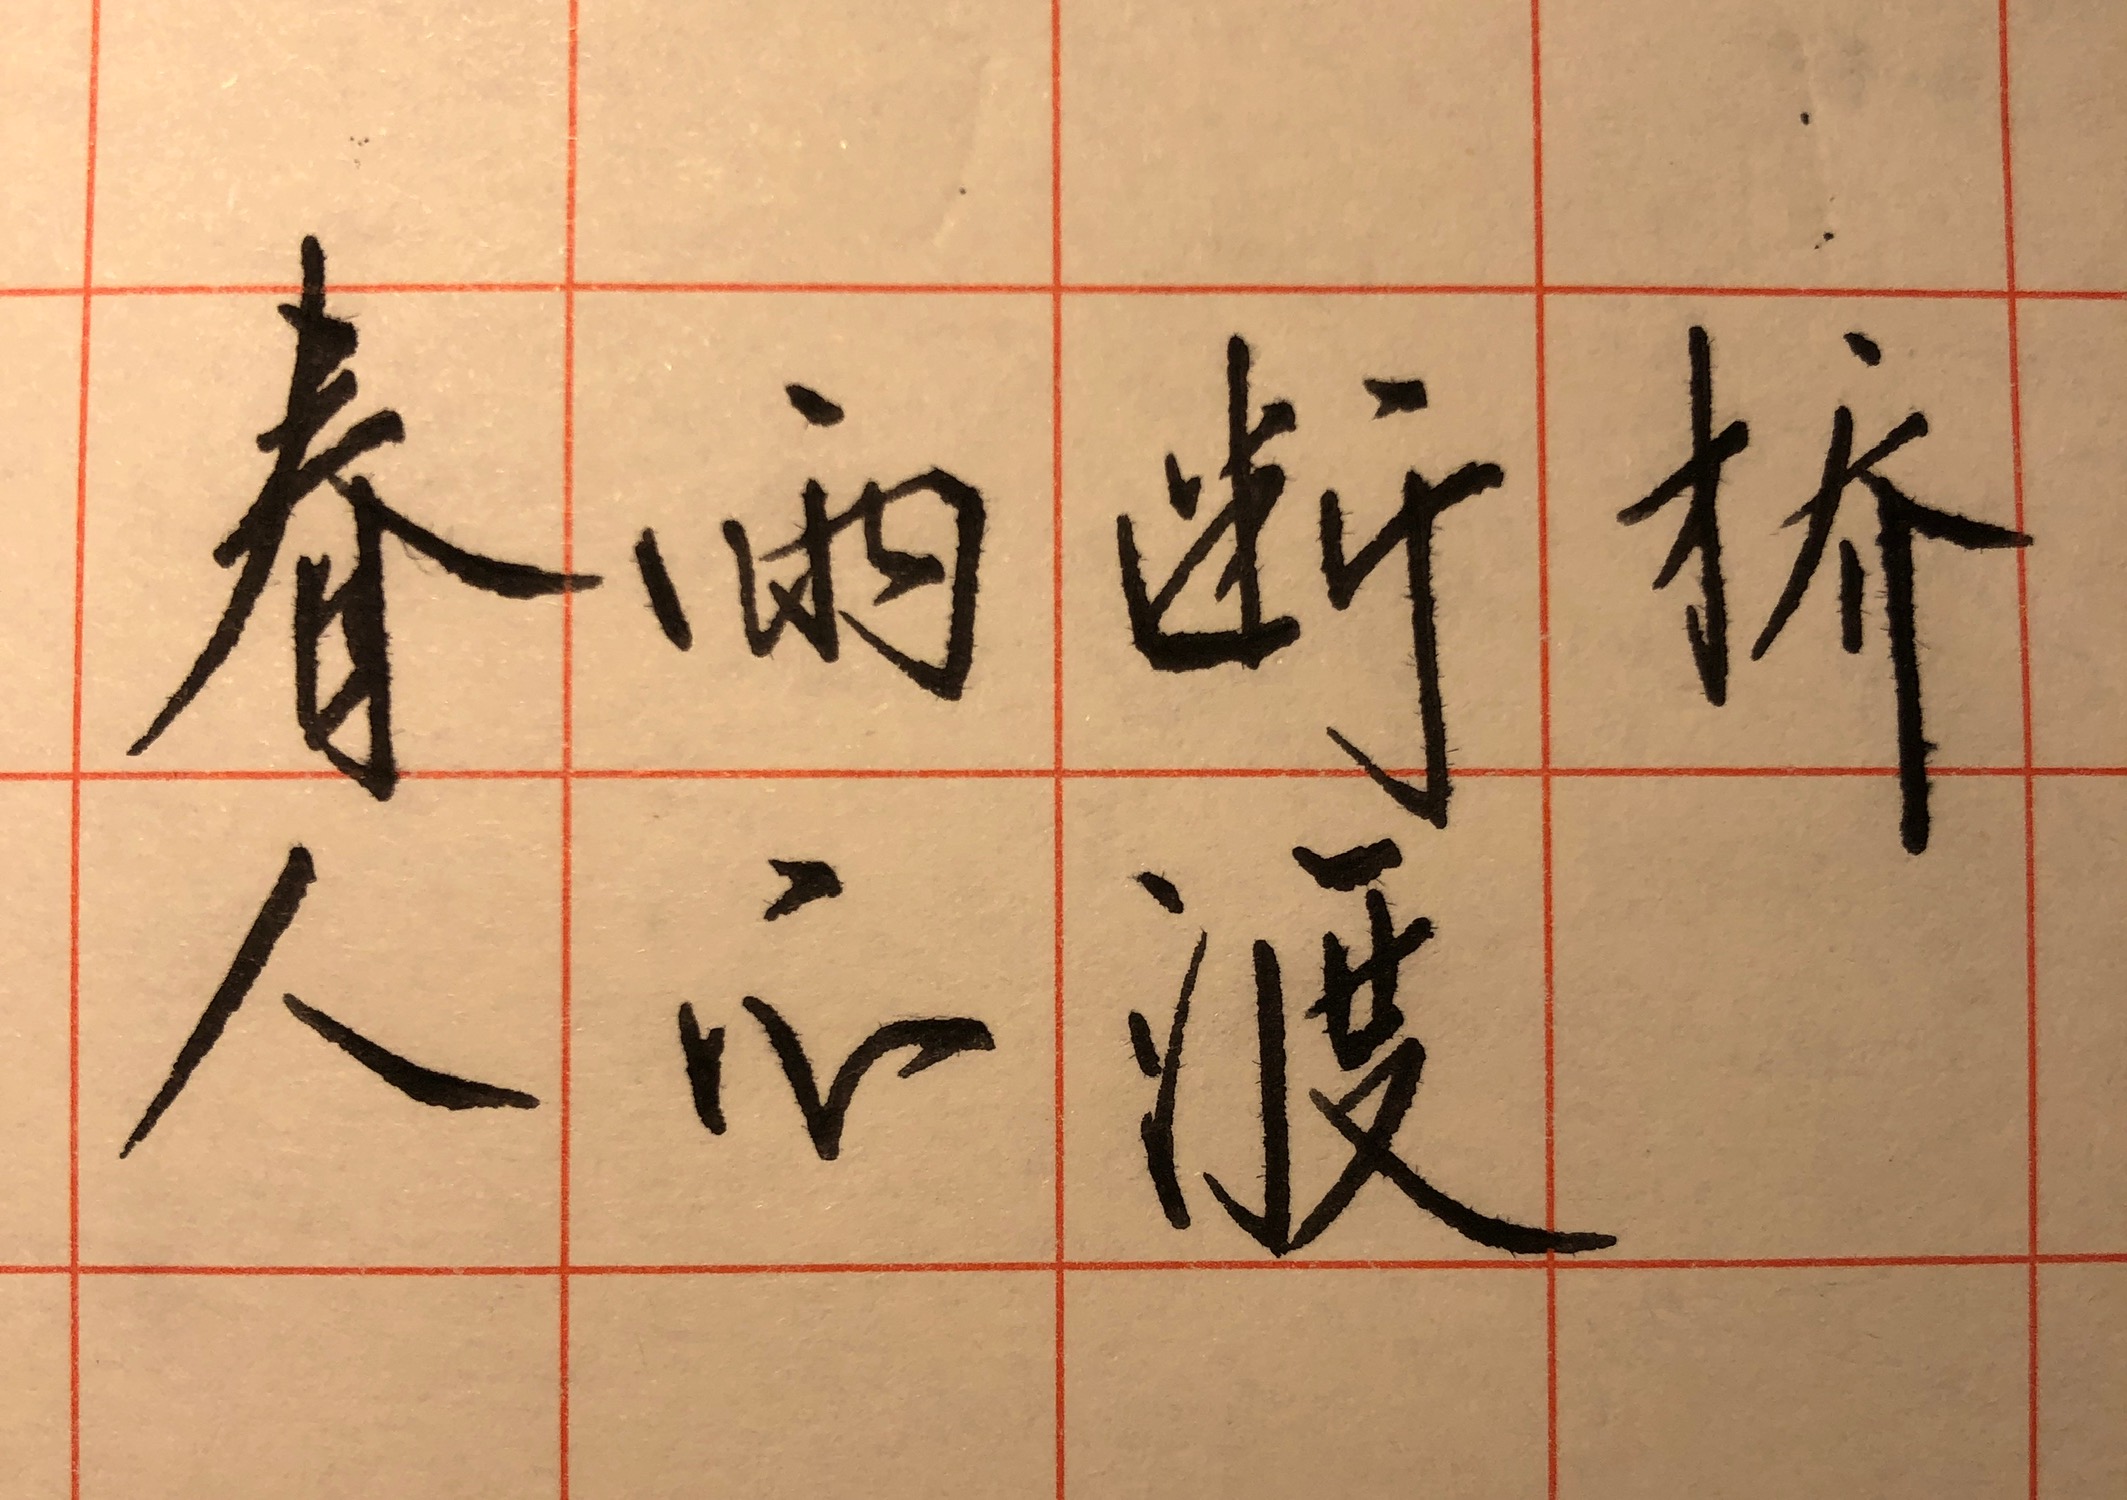 春雨断桥
人不渡